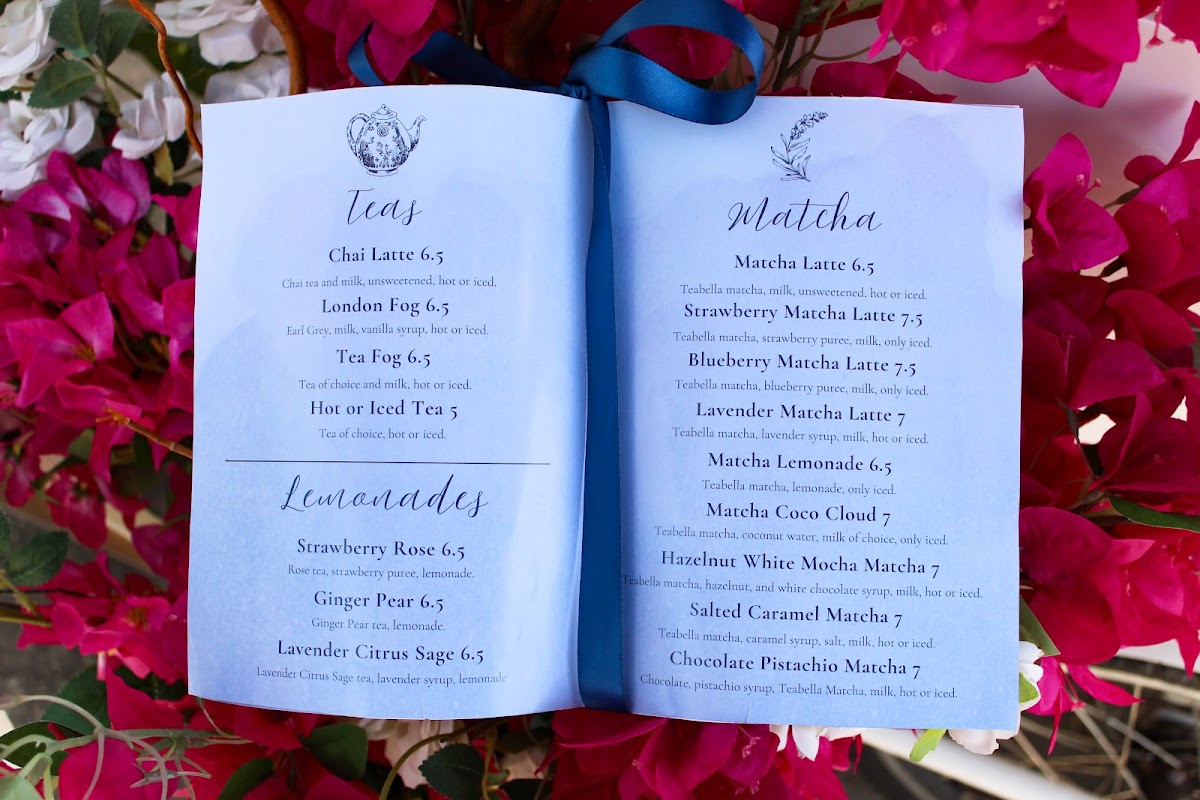 Teas
Chai Latte 6.5
Chai tea and milk, unsweetened, hot or iced.
London Fog 6.5
Earl Grey, milk, vanilla syrup, hot or iced.
Tea Fog 6.5
Tea of choice and milk, hot or iced.
Hot or Iced Tea 5
Tea of choice, hot or iced.
Lemonades
Strawberry Rose 6.5
Rose tea, strawberry puree, lemonade.
Ginger Pear 6.5
Ginger Pear tea, lemonade.
Lavender Citrus Sage 6.5
Lavender Citrus Sage tea, lavender syrup, lemonade
Matcha
Matcha Latte 6.5
Teabella matcha, milk, unsweetened, hot or iced.
Strawberry Matcha Latte 7.5
Teabella matcha, strawberry puree, milk, only iced.
Blueberry Matcha Latte 7.5
Teabella matcha, blueberry puree, milk, only iced.
Lavender Matcha Latte 7
Teabella matcha, lavender syrup, milk, hot or iced.
Matcha Lemonade 6.5
Teabella matcha, lemonade, only iced.
Matcha Coco Cloud 7
Teabella matcha, coconut water, milk of choice, only iced.
Hazelnut White Mocha Matcha 7
Teabella matcha, hazelnut, and white chocolate syrup, milk, hot or iced.
Salted Caramel Matcha 7
Teabella matcha, caramel syrup, salt, milk, hot or iced.
Chocolate Pistachio Matcha 7
Chocolate, pistachio syrup, Teabella Matcha, milk, hot or iced.